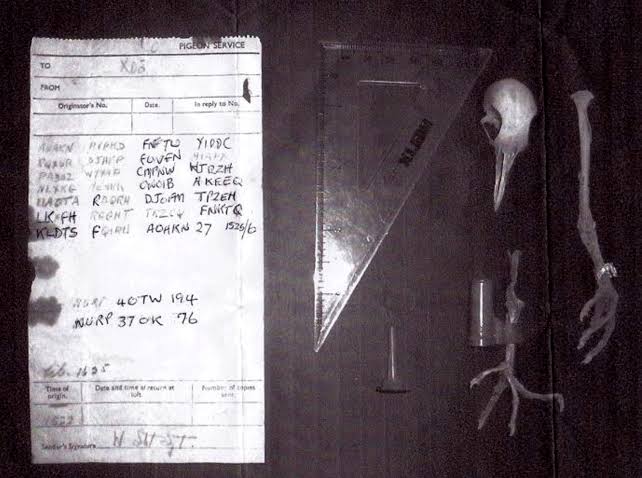 PIGEON SERVICE
TO X02
FROM
Originator's No. Date. In reply to No.
AOAKN HVPKD FNFJW YIDDC
RQXSR DJHFP GOVFN
PABUZ WYYNP CMPNW HJRZH
NLXKG ONOIB AKEEQ
UAOTA RBQRH DJOFM TPZEH
LKXGH RGGHT JRZCQ FNKTQ
KLDTS FQIRW AOAKN 27 1525/6
NURP 40TW 194
NURP 37OK 76
lib. 1625
Time of origin. Date and time of return at loft. Number of copies sent.
1522
Sender's Signature W Stot Sjt.